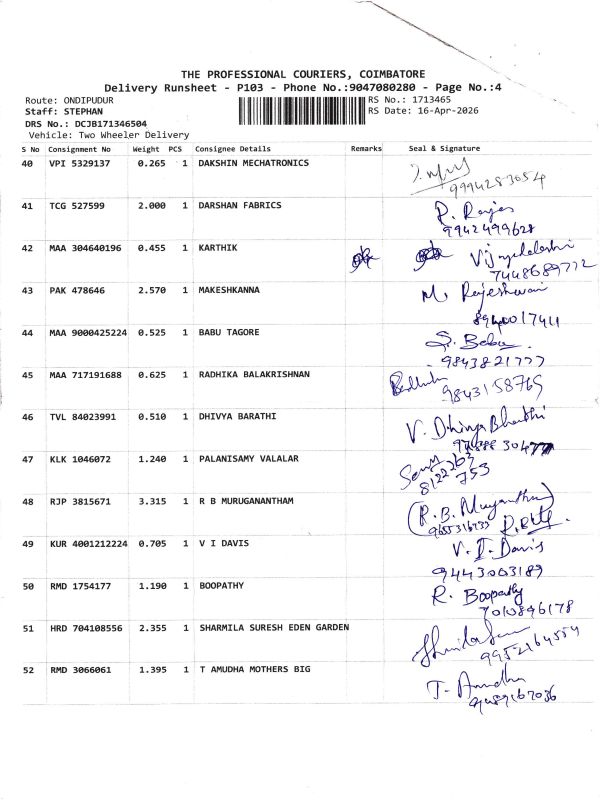 THE PROFESSIONAL COURIERS, COIMBATORE
Delivery Runsheet - P103 - Phone No.:9047080280 - Page No.:4
Route: ONDIPUDUR RS No.: 1713465
Staff: STEPHAN RS Date: 16-Apr-2026
DRS No.: DCJB171346504
Vehicle: Two Wheeler Delivery
S No Consignment No Weight PCS Consignee Details Remarks Seal & Signature
40 VPI 5329137 0.265 1 DAKSHIN MECHATRONICS
9994283054
41 TCG 527599 2.000 1 DARSHAN FABRICS R. Rajas
9942499628
42 MAA 304640196 0.455 1 KARTHIK Vijayalakshmi
7448689772
43 PAK 478646 2.570 1 MAKESHKANNA M. Rajeshwari
8940017411
44 MAA 9000425224 0.525 1 BABU TAGORE S. Babu
9843821777
45 MAA 717191688 0.625 1 RADHIKA BALAKRISHNAN
9843158765
46 TVL 84023991 0.510 1 DHIVYA BARATHI V. Dhivya Bharathi
47 KLK 1046072 1.240 1 PALANISAMY VALALAR
8122263
753
48 RJP 3815671 3.315 1 R B MURUGANANTHAM (R.B. Muruganantham)
9655316733
49 KUR 4001212224 0.705 1 V I DAVIS V. I. Davis
9443003189
50 RMD 1754177 1.190 1 BOOPATHY R. Boopathy
7010896178
51 HRD 704108556 2.355 1 SHARMILA SURESH EDEN GARDEN
9952164554
52 RMD 3066061 1.395 1 T AMUDHA MOTHERS BIG T. Amudha
9489167036